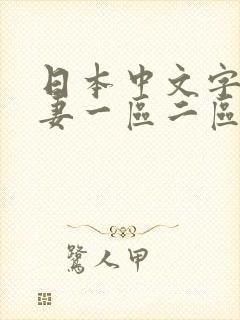 日本中文字
妻一區二區
鷺人甲